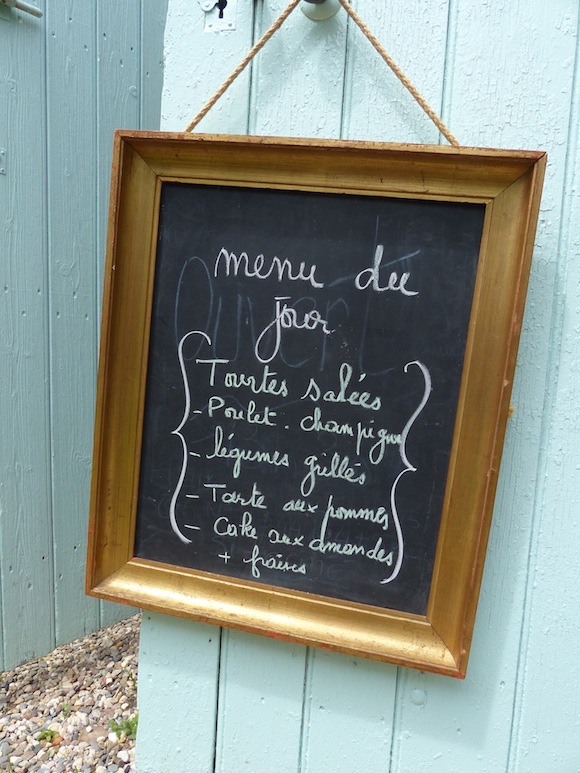 menu du
jour
Tourtes salées
- Poulet . champignon
- légumes grillés
- Tarte aux pommes
- Cake aux amandes
+ fraises